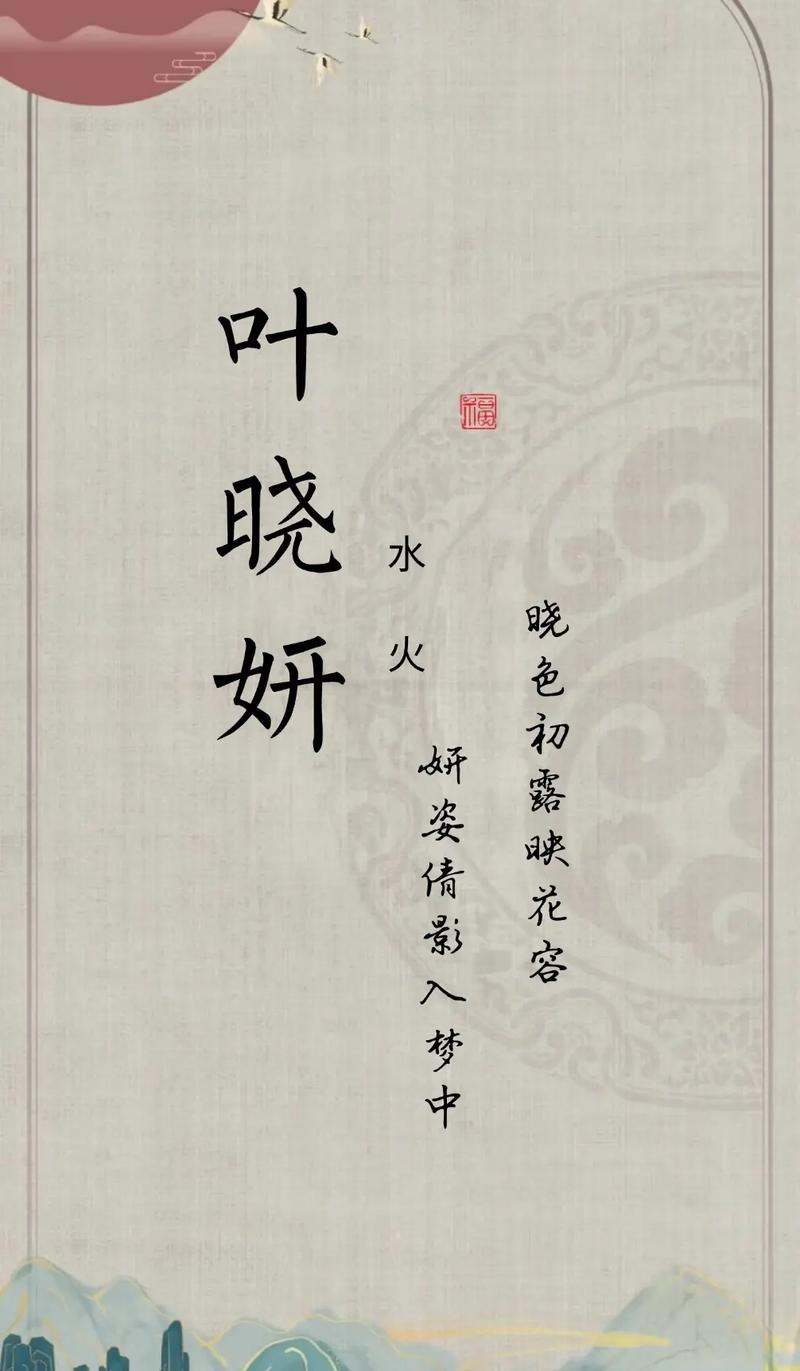 叶晓妍
水火
福
晓色初露映花容
妍姿倩影入梦中